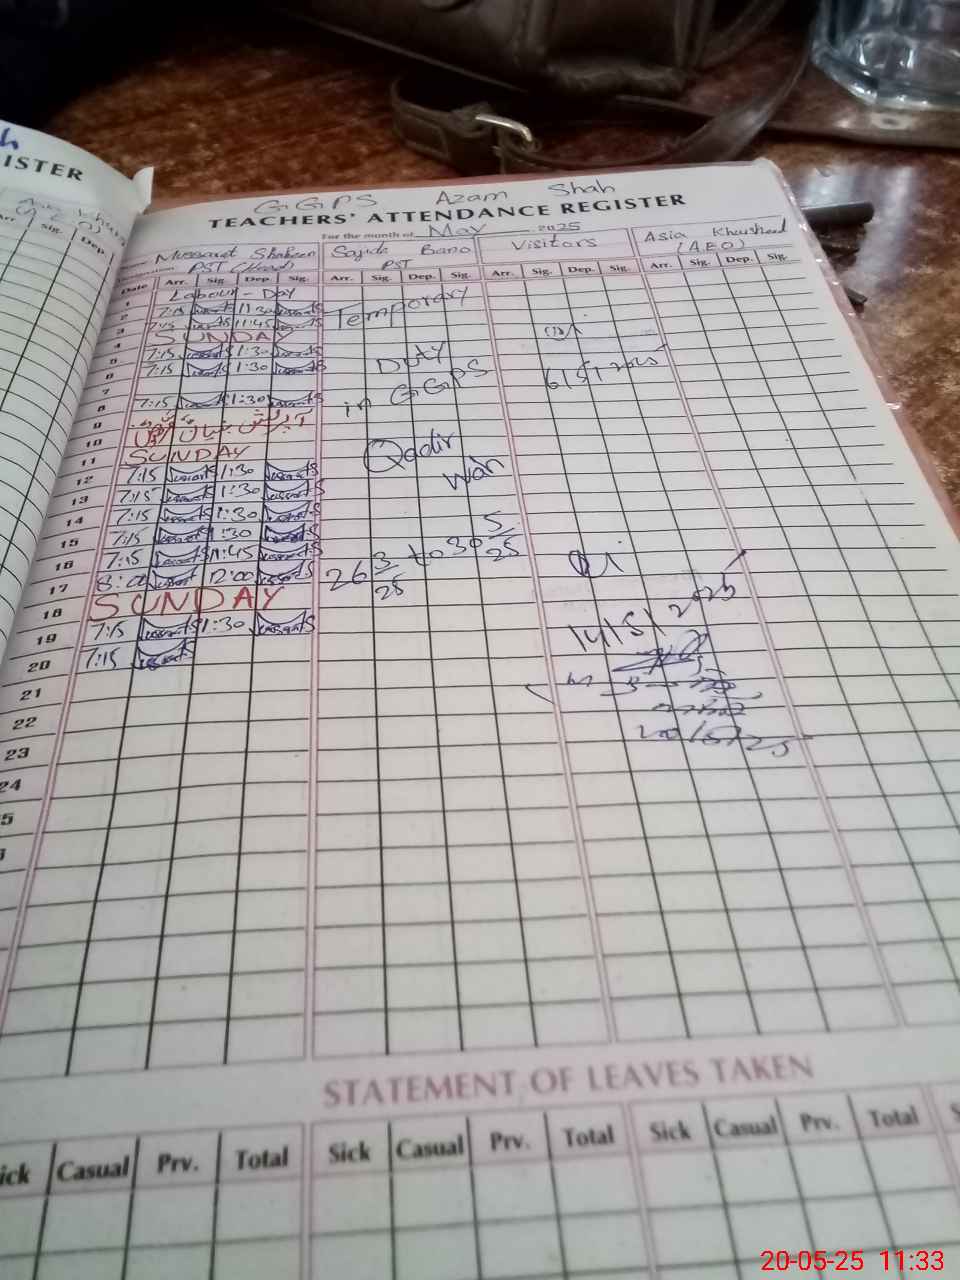 ISTER
Arr. Sig. Dep.
GGPS Azam Shah
TEACHERS' ATTENDANCE REGISTER
For the month of May 2025
Mussarat Shaheen Sajida Bano Visitors Asia Khursheed
PST (Head) PST (AEO)
Date Arr. Sig. Dep. Sig. Arr. Sig. Dep. Sig. Arr. Sig. Dep. Sig. Arr. Sig. Dep. Sig.
1 Labour-Day
2 7:15 11:30 Temporary
3 7:15 11:45
4 SUNDAY
5 7:15 1:30 Duty
6 7:15 1:30 in GGPS 6/5/2025
7
8 7:15 1:30
9 آپریشن بنیان
10 Qadir
11 SUNDAY War
12 7:15 1:30
13 7:15 1:30
14 7:15 1:30
15 7:15 1:30
16 7:15 11:45 26 3/25 to 30 5/25
17 8:00 12:00
18 SUNDAY
19 7:15 1:30 14/5/2025
20 7:15
21
22 20/5/25
23
24
5
STATEMENT OF LEAVES TAKEN
ick Casual Prv. Total Sick Casual Prv. Total Sick Casual Prv. Total S
20-05-25 11:33